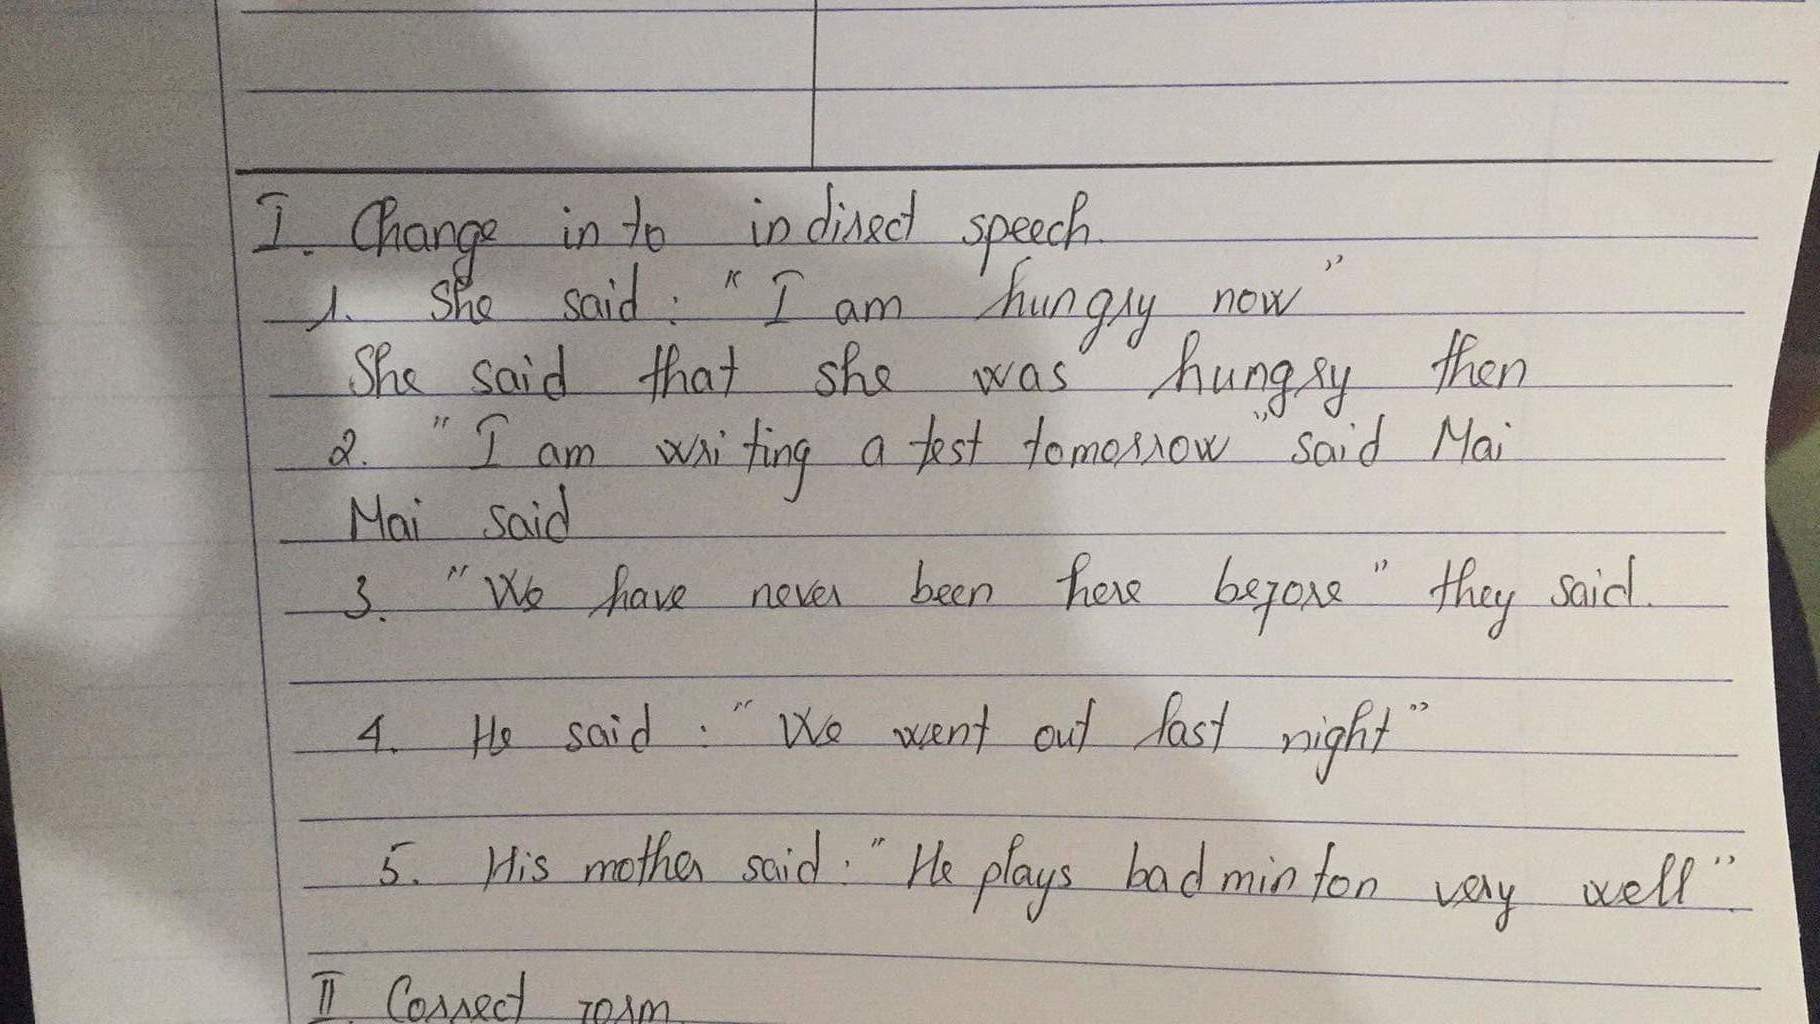 I. Change in to indirect speech.
1. She said : "I am hungry now"
She said that she was hungry then
2. "I am writing a test tomorrow" said Mai
Mai said
3. "We have never been here before" they said.
4. He said : "We went out last night"
5. His mother said : "He plays badminton very well".
II. Correct form